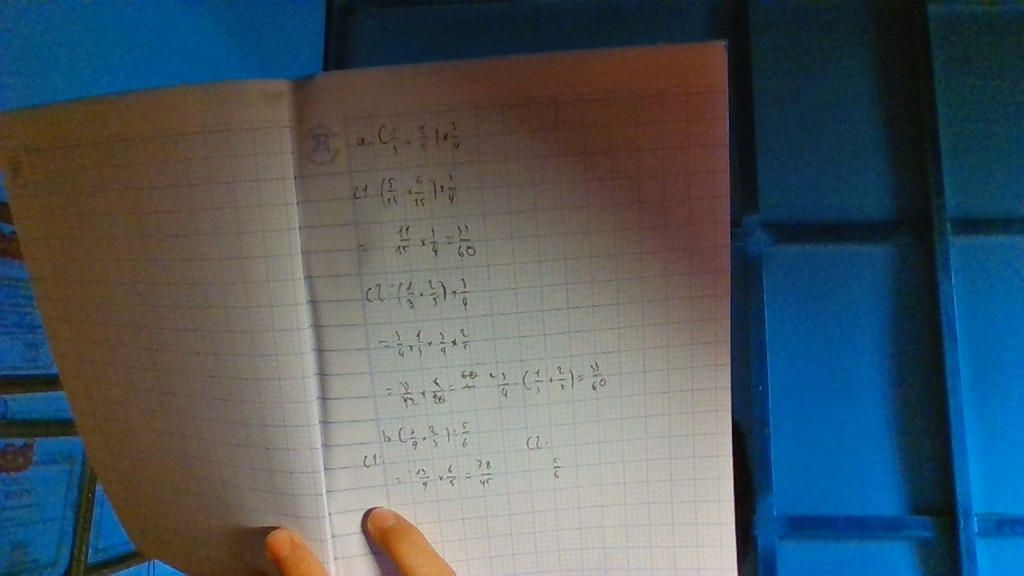 a. (1/3 + 2/5) × 3/4
C1: (5/15 + 6/15) × 3/4
= 11/15 × 3/4 = 33/60
C2: (1/3 + 2/5) × 3/4
= 3/4 × 1/3 + 3/4 × 2/5
= 3/12 + 6/20 = 3/4 × (1/3 + 2/5) = 33/60
b (7/9 + 2/3) : 5/6
C1: C2:
= 13/9 × 6/5 = 78/45 5/6